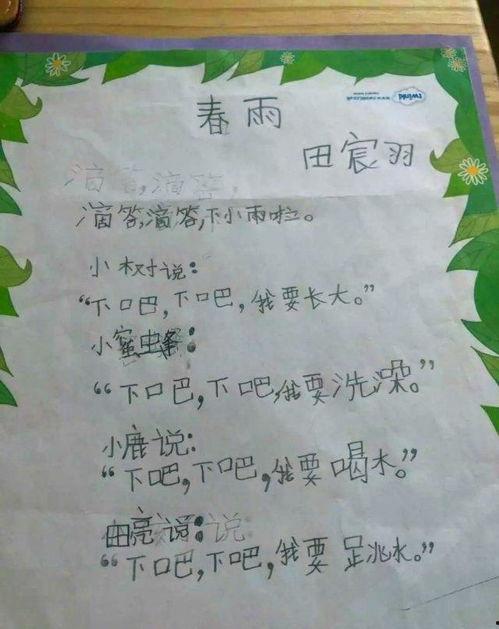 春雨
田宸羽
滴答,滴答,
滴答,滴答,下小雨啦。
小树说:
“下吧,下吧,我要长大。”
小蜜蜂:
“下吧,下吧,我要洗澡。”
小鹿说:
“下吧,下吧,我要喝水。”
田亮说:说
“下吧,下吧,我要跳水。”
twinkl